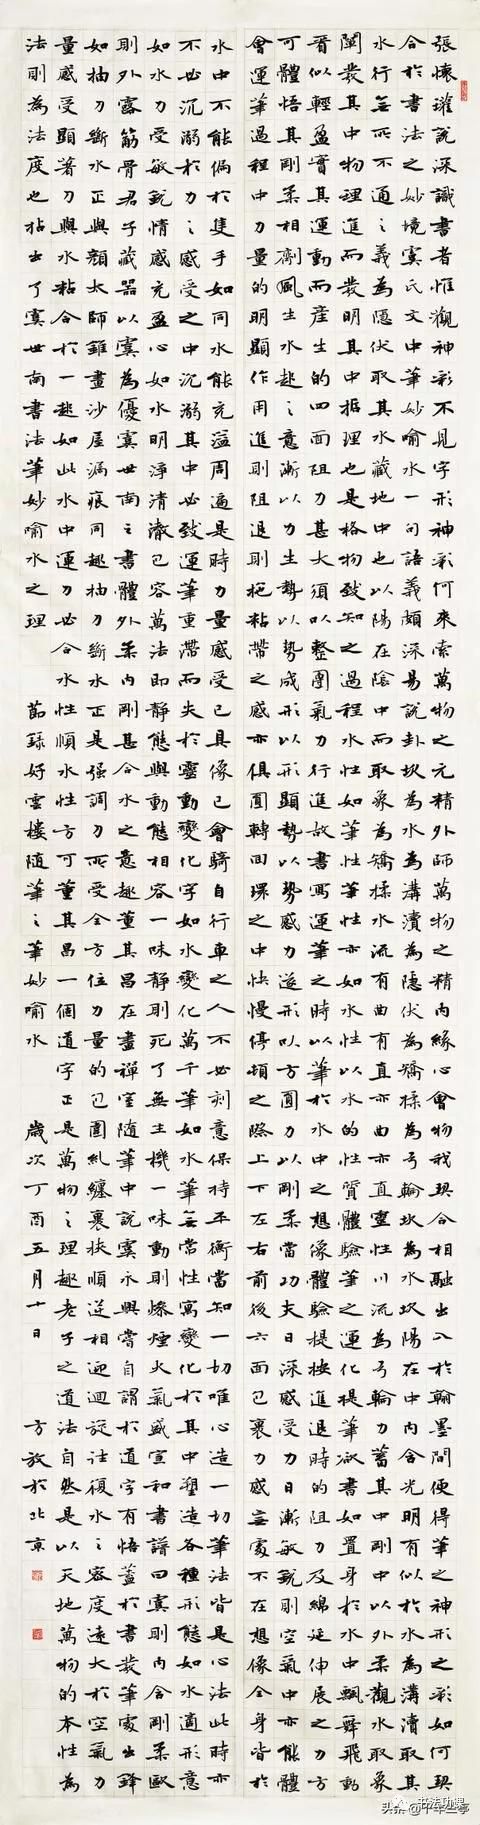 張懷瓘說深識書者惟觀神彩不見字形神彩何來索萬物之元精外師萬物之精內緣心會物我契合相融出入於翰墨間便得筆之神形之彩如何契
合於書法之妙境虞氏文中筆妙喻水一句語義頗深易說卦坎為水為溝瀆為隱伏為矯揉為弓輪坎為水坎陽在中內含光明有似於水為溝瀆取其
水行無所不通之義為隱伏取其水藏地中也以陽在陰中而取象為矯揉水流有曲有直亦曲亦直靈性川流為弓輪力蓄其中剛中以外柔觀水取象
闡發其中物理進而發明其中據理也是格物致知之過程水性如筆性筆性亦如水性以水的性質體驗筆之運化提筆欲書如置身於水中飄舞飛動
看似輕盈實其運動而產生的四面阻力甚大須以整團氣力行進故書寫運筆之時以筆於水中之想像體驗提按進退時的阻力及綿延伸展之力方
可體悟其剛柔相劑風生水起之意漸以力生勢以勢成形以形顯勢以勢感力造形以方圓力以剛柔當功夫日深感受力日漸敏銳則空氣中亦能體
會運筆過程中力量的明顯作用進則阻退則拖粘帶之感亦俱圓轉回環之中快慢停頓之際上下左右前後六面包裹力感無處不在想像全身皆於
水中不能偏於隻手如同水能充溢周遍是時力量感受已具像已會騎自行車之人不必刻意保持平衡當知一切唯心造一切筆法皆是心法此時亦
不必沉溺於力之感受之中沉溺其中必致運筆重滯而失於靈動變化字如水變化萬千筆如水筆無常性寓變化於其中塑造各種形態如水適形意
如水力受敏銳情感充盈心如水明淨清澈包容萬法即靜態與動態相容一味靜則死了無生機一味動則燥煙火氣盛宣和書譜曰虞則內含剛柔歐
則外露筋骨君子藏器以虞為優虞世南之書體外柔內剛甚合水之意趣董其昌在畫禪室隨筆中說虞永興嘗自謂於道字有悟蓋於書發筆處出鋒
如抽刀斷水正與顏太師錐畫沙屋漏痕同趣抽刀斷水正是強調力所受全方位力量的包圍糾纏裹挾順逆相迎迴旋往復水之容度遠大於空氣力
量感受顯著力與水粘合於一起如此水中運力必合水性順水性方可董其昌一個道字正是萬物之理趣老子之道法自然是以天地萬物的本性為
法則為法度也拈出了虞世南書法筆妙喻水之理 節錄好雲樓隨筆之筆妙喻水 歲次丁酉五月十日 方放於北京
书法功课
头条@千年兰亭